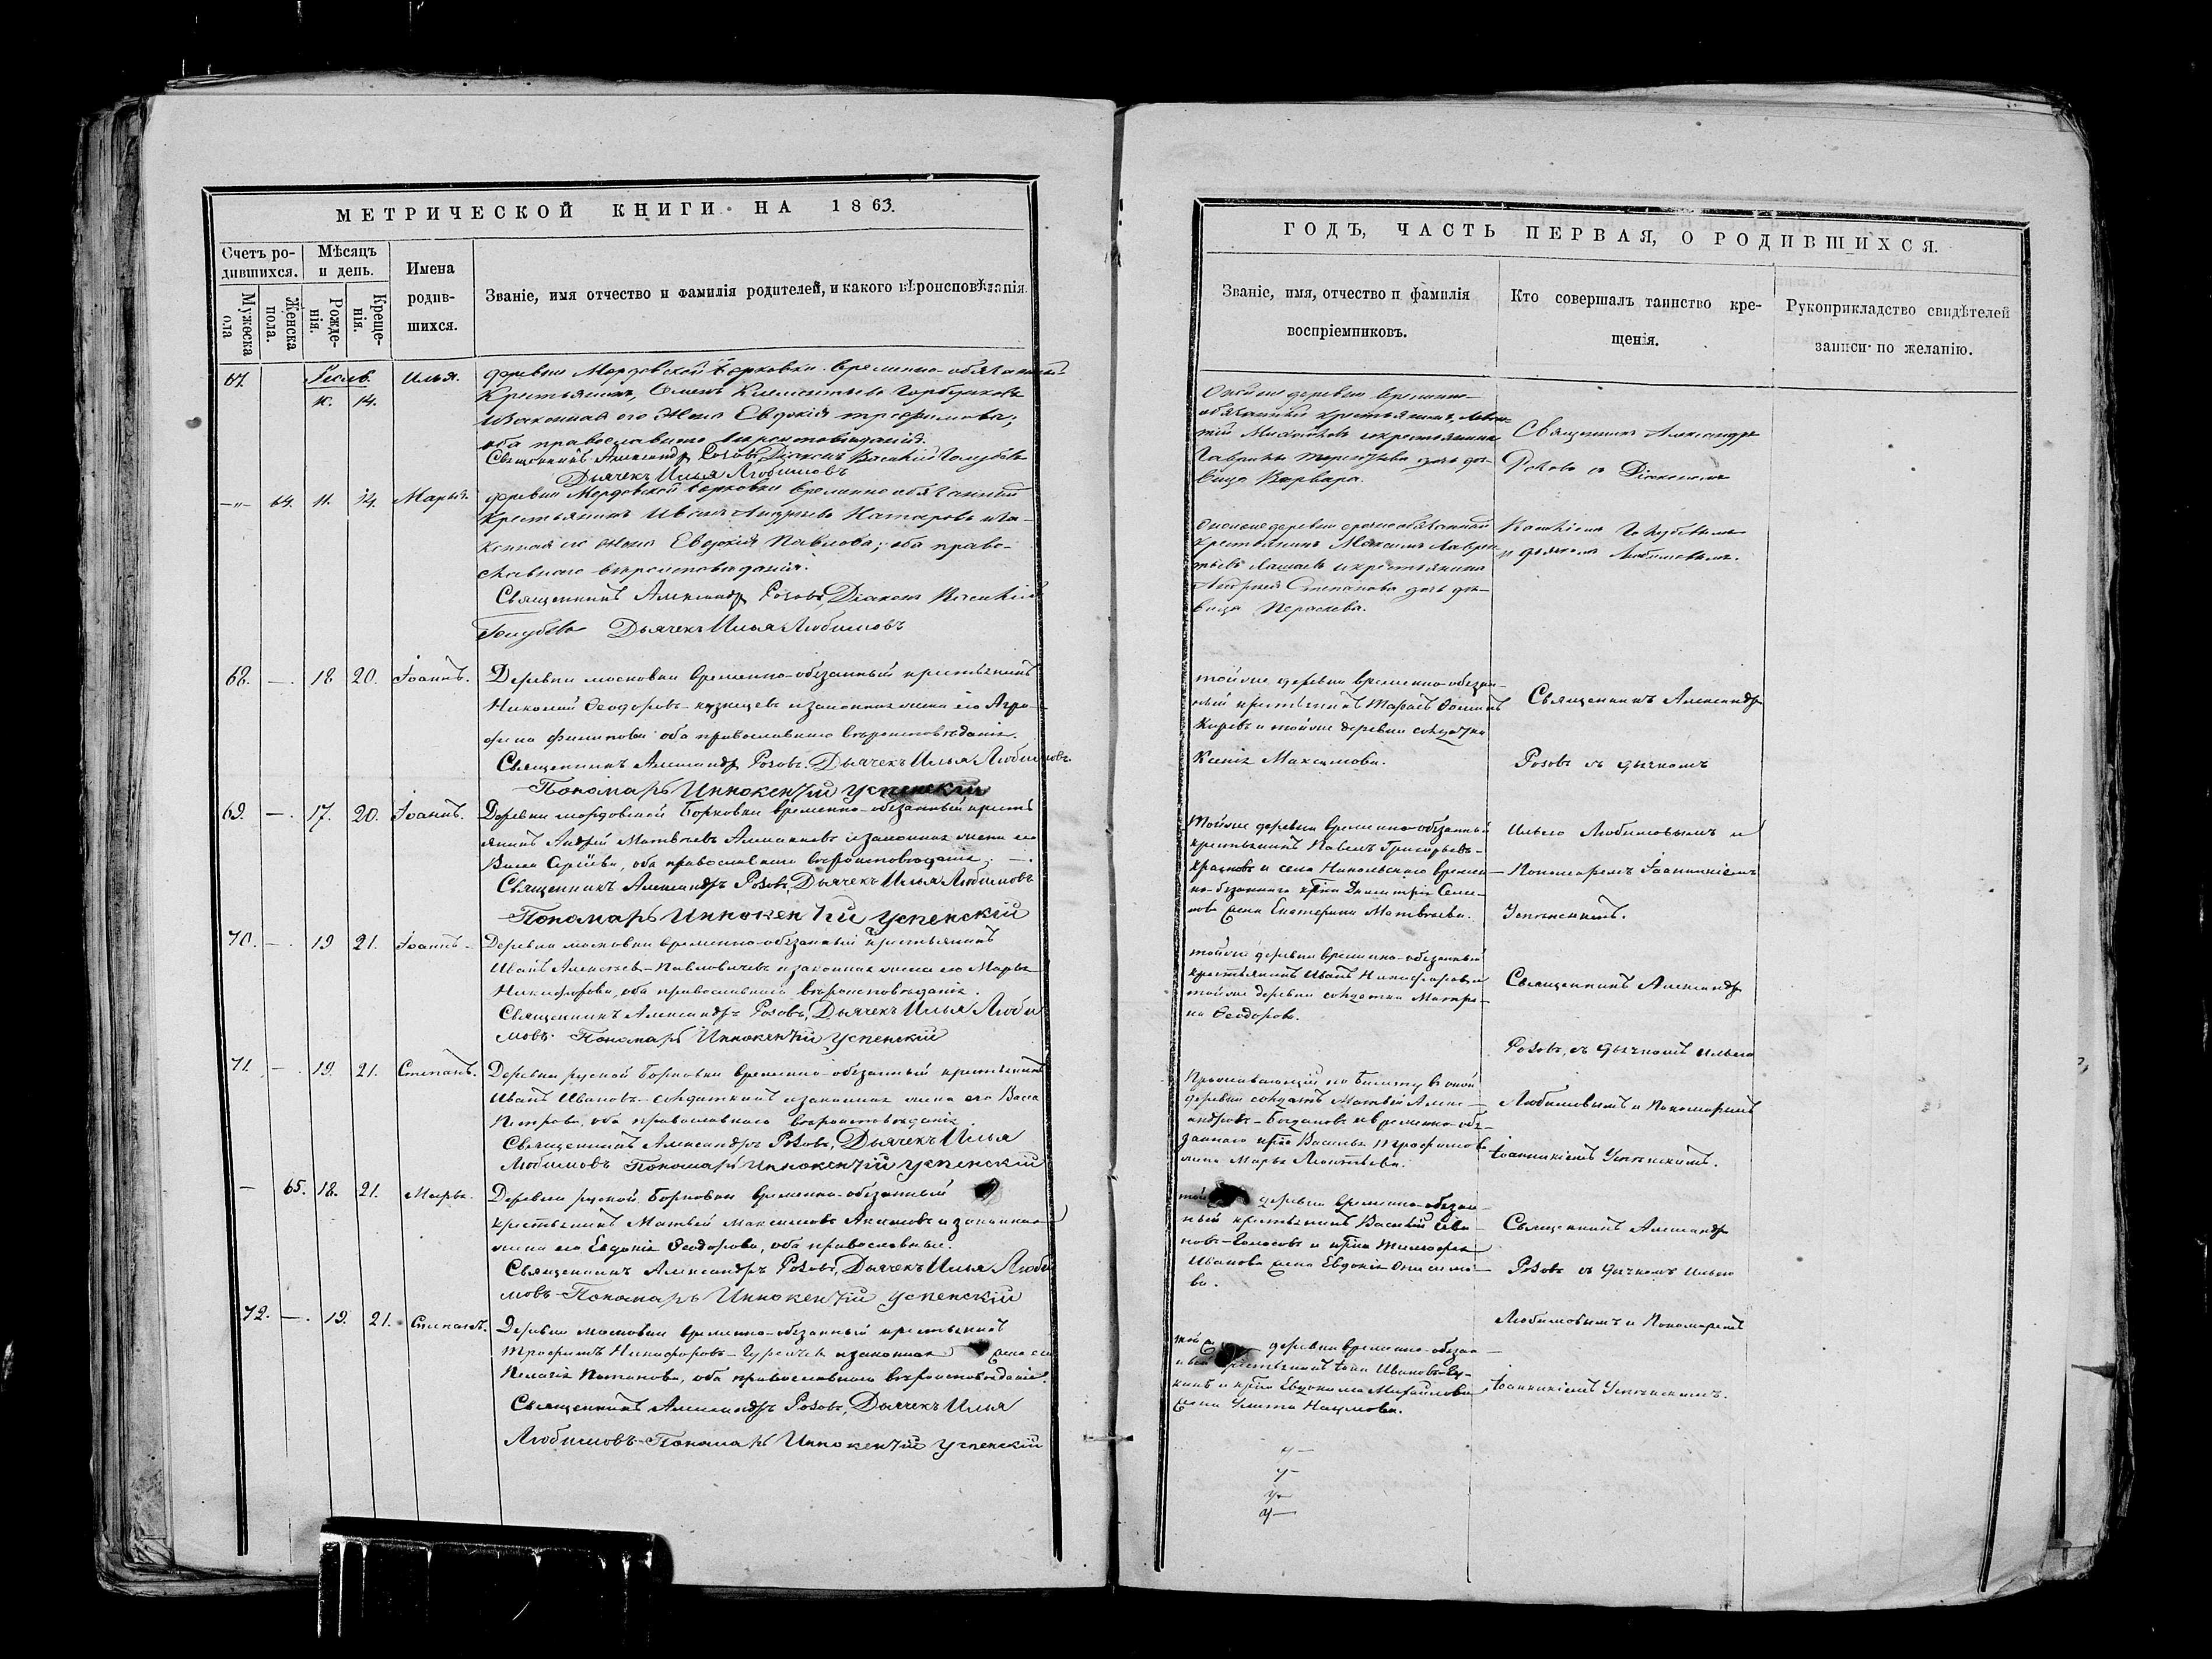 МЕТРИЧЕСКОЙ КНИГИ НА 1863.
Счетъ ро-
дившихся.
Мѣсяцъ
и день.
Имена
родив-
шихся.
Званіе, имя отчество и фамилія родителей, и какого вѣроисповѣданія.
Мужеска
пола
Женска
пола.
Рожде-
нія.
Креще-
нія.
67.
14.
Илья.
деревни Мордовской Борковки временно-обязанный
Крестьянинъ, Семенъ Климентьевъ
изаконная его жена Евдокія Трофимова;
оба православнаго вѣроисповѣданія.
Священникъ Александръ Розовъ Діаконъ Василій Голубевъ
Дьячекъ Илья Любимовъ
-"- 64. 11. 14. Марья.
деревни Мордовской Борковки временно обязанный
Крестьянинъ Иванъ Андреевъ иза-
конная его жена Евдокія Павлова; оба право-
славнаго вѣроисповѣданія.
Священникъ Александръ Розовъ, Діаконъ Василій
Голубевъ Дьячекъ Илья Любимовъ
68. -. 18 20. Іоаннъ.
Деревни московки временно-обезанный крестьянинъ
Николай Ѳеодоровъ-кузнецевъ изаконная жена его Агра-
фена Филипова оба православнаго вѣроисповѣданія.
Священникъ Александръ Розовъ. Дьячекъ Илья Любимовъ
Пономарь Иннокентій Успенскій
69. -. 17. 20. Іоаннъ.
Деревни мордовской Борковки временно-обезанный кресть
янинъ Андрей Матвѣевъ изаконная жена его
оба православнаго вѣроисповѣданія. -.
Священникъ Александръ Розовъ, Дьячекъ Илья Любимовъ
Пономарь Иннокентій Успенскій
70. -. 19 21. Іоаннъ-
Деревни московки временно-обезанный крестьянинъ
Иванъ Алексѣевъ-Павловичевъ изаконная жена его Марья
Никифорова, оба православнаго вѣроисповѣданія.
Священникъ Александръ Розовъ, Дьячекъ Илья Люби
мовъ Пономарь Иннокентій Успенскій
71. -. 19. 21. Степанъ.
Деревни руской Борковки временно-обезанный крестьянинъ
Иванъ Ивановъ-солдаткинъ изаконная жена его Васса
Петрова, оба православнаго вѣроисповѣданія
Священникъ Александръ Розовъ, Дьячекъ Илья
Любимовъ Пономарь Иннокентій Успенскій
- 65. 18. 21. Марья.
Деревни руской Борковки временно-обезанный
крестьянинъ Матвей Максимовъ Акимовъ изаконная
жена его Евдокія Ѳеодорова, оба православные.
Священникъ Александръ Розовъ, Дьячекъ Илья Люби
мовъ Пономарь Иннокентій Успенскій
72. -. 19. 21. Степанъ.
Деревни московки временно-обезанный крестьянинъ
Трофимъ Никифоровъ-Гурьичевъ изаконная жена его
Пелагія Потапова, оба православнаго вѣроисповѣданія.
Священникъ Александръ Розовъ, Дьячекъ Илья
Любимовъ-Пономарь Иннокентій Успенскій
ГОДЪ, ЧАСТЬ ПЕРВАЯ, О РОДИВШИХСЯ.
Званіе, имя, отчество и фамилія
воспріемниковъ.
Кто совершалъ таинство кре-
щенія.
Рукоприкладство свидѣтелей
записи по желанію.
Оной же деревни временно-
обязанный крестьянинъ,
крестьянина
Гаврилы дочь дѣ-
вица Варвара.
Священникъ Александръ
Розовъ съ Діакономъ
Оной же деревни обязанный
Крестьянинъ Максимъ Лаврен
тьевъ икрестьянина
Андрея Степанова дочь дѣ-
вица
Василіемъ Голубевымъ
и дьячкомъ Любимовымъ.
тойже деревни временно-обезан-
ный крестьянинъ Тарасъ
и тойже деревни солдатка
Ксенія Максимова.
Священникъ Александръ
Розовъ съ дьячкомъ
Тойже деревни временно-обезанный
крестьянинъ Павелъ Григорьевъ-
и села Никольскаго времен-
но-безаннаго кр-на Димитрія Семе-
нова жена Екатерина Матвѣева.
Ильею Любимовымъ и
Пономаремъ Іоанникіемъ
Успенскимъ.
тойже деревни временно-обезанный
крестьянинъ Иванъ Никифоровъ и
тойже деревни солдатка Матре-
на Ѳеодорова.
Священникъ Александръ
Розовъ, съ дьячкомъ Ильею
Проживающій по билету въ оной
деревни солдатъ Матвей Алекс-
андровъ-Богдановъ ивременно-обе-
заннаго кр-на Василья Трофимова
жена Марья Леонтьева.
Любимовымъ и Пономаремъ
Іоанникіемъ Успенскимъ.
той деревни временно-обезан-
ный крестьянинъ Василій Ива-
новъ-Голосовъ и кр-на Тимофея
Иванова жена Евдокія Онисимо-
ва.
Священникъ Александръ
Розовъ съ дьячкомъ Ильею
той деревни временно-обезан-
ный крестьянинъ Ивановъ
и кр-на Евдокима Михайлова
жена Улита Наумова.
Любимовымъ и Пономаремъ
Іоанникіемъ Успенскимъ.